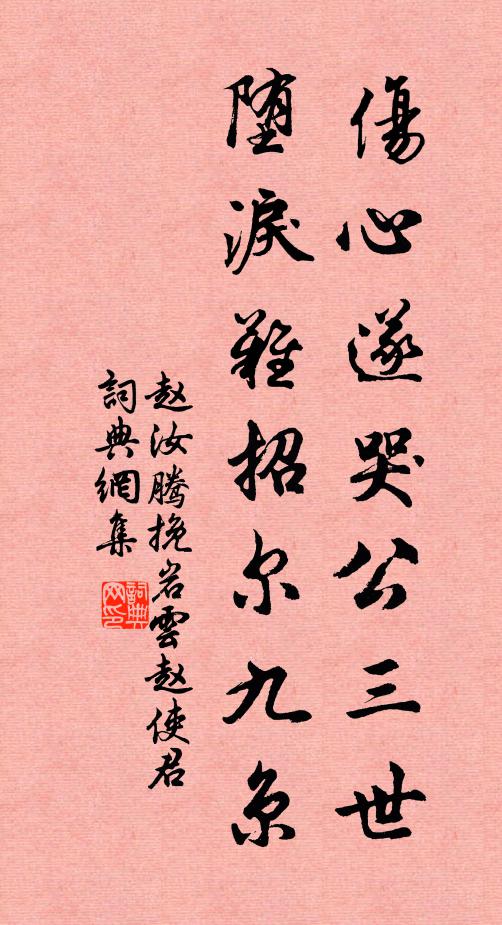 傷心遂哭公三世
堕淚難招尔九京
赵汝騰挽岩雲赵使君
詞典網集
詞典网印